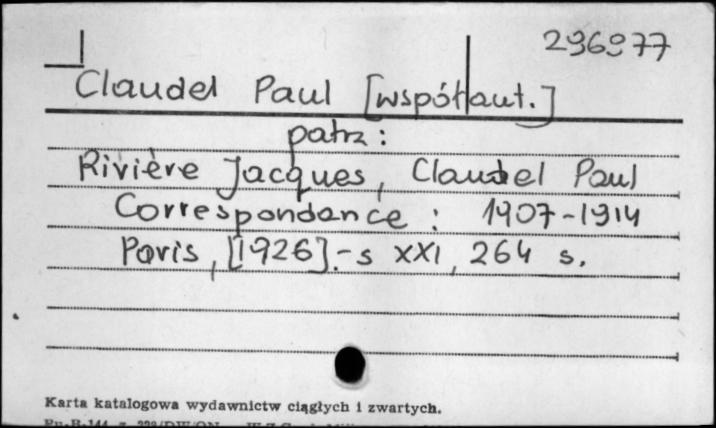 296977
Claudel Paul [współaut.]
patrz:
Rivière Jacques, Claudel Paul
Correspondance : 1907-1914
Paris, [1926].-s XXI, 264 s.
Karta katalogowa wydawnictw ciągłych i zwartych.